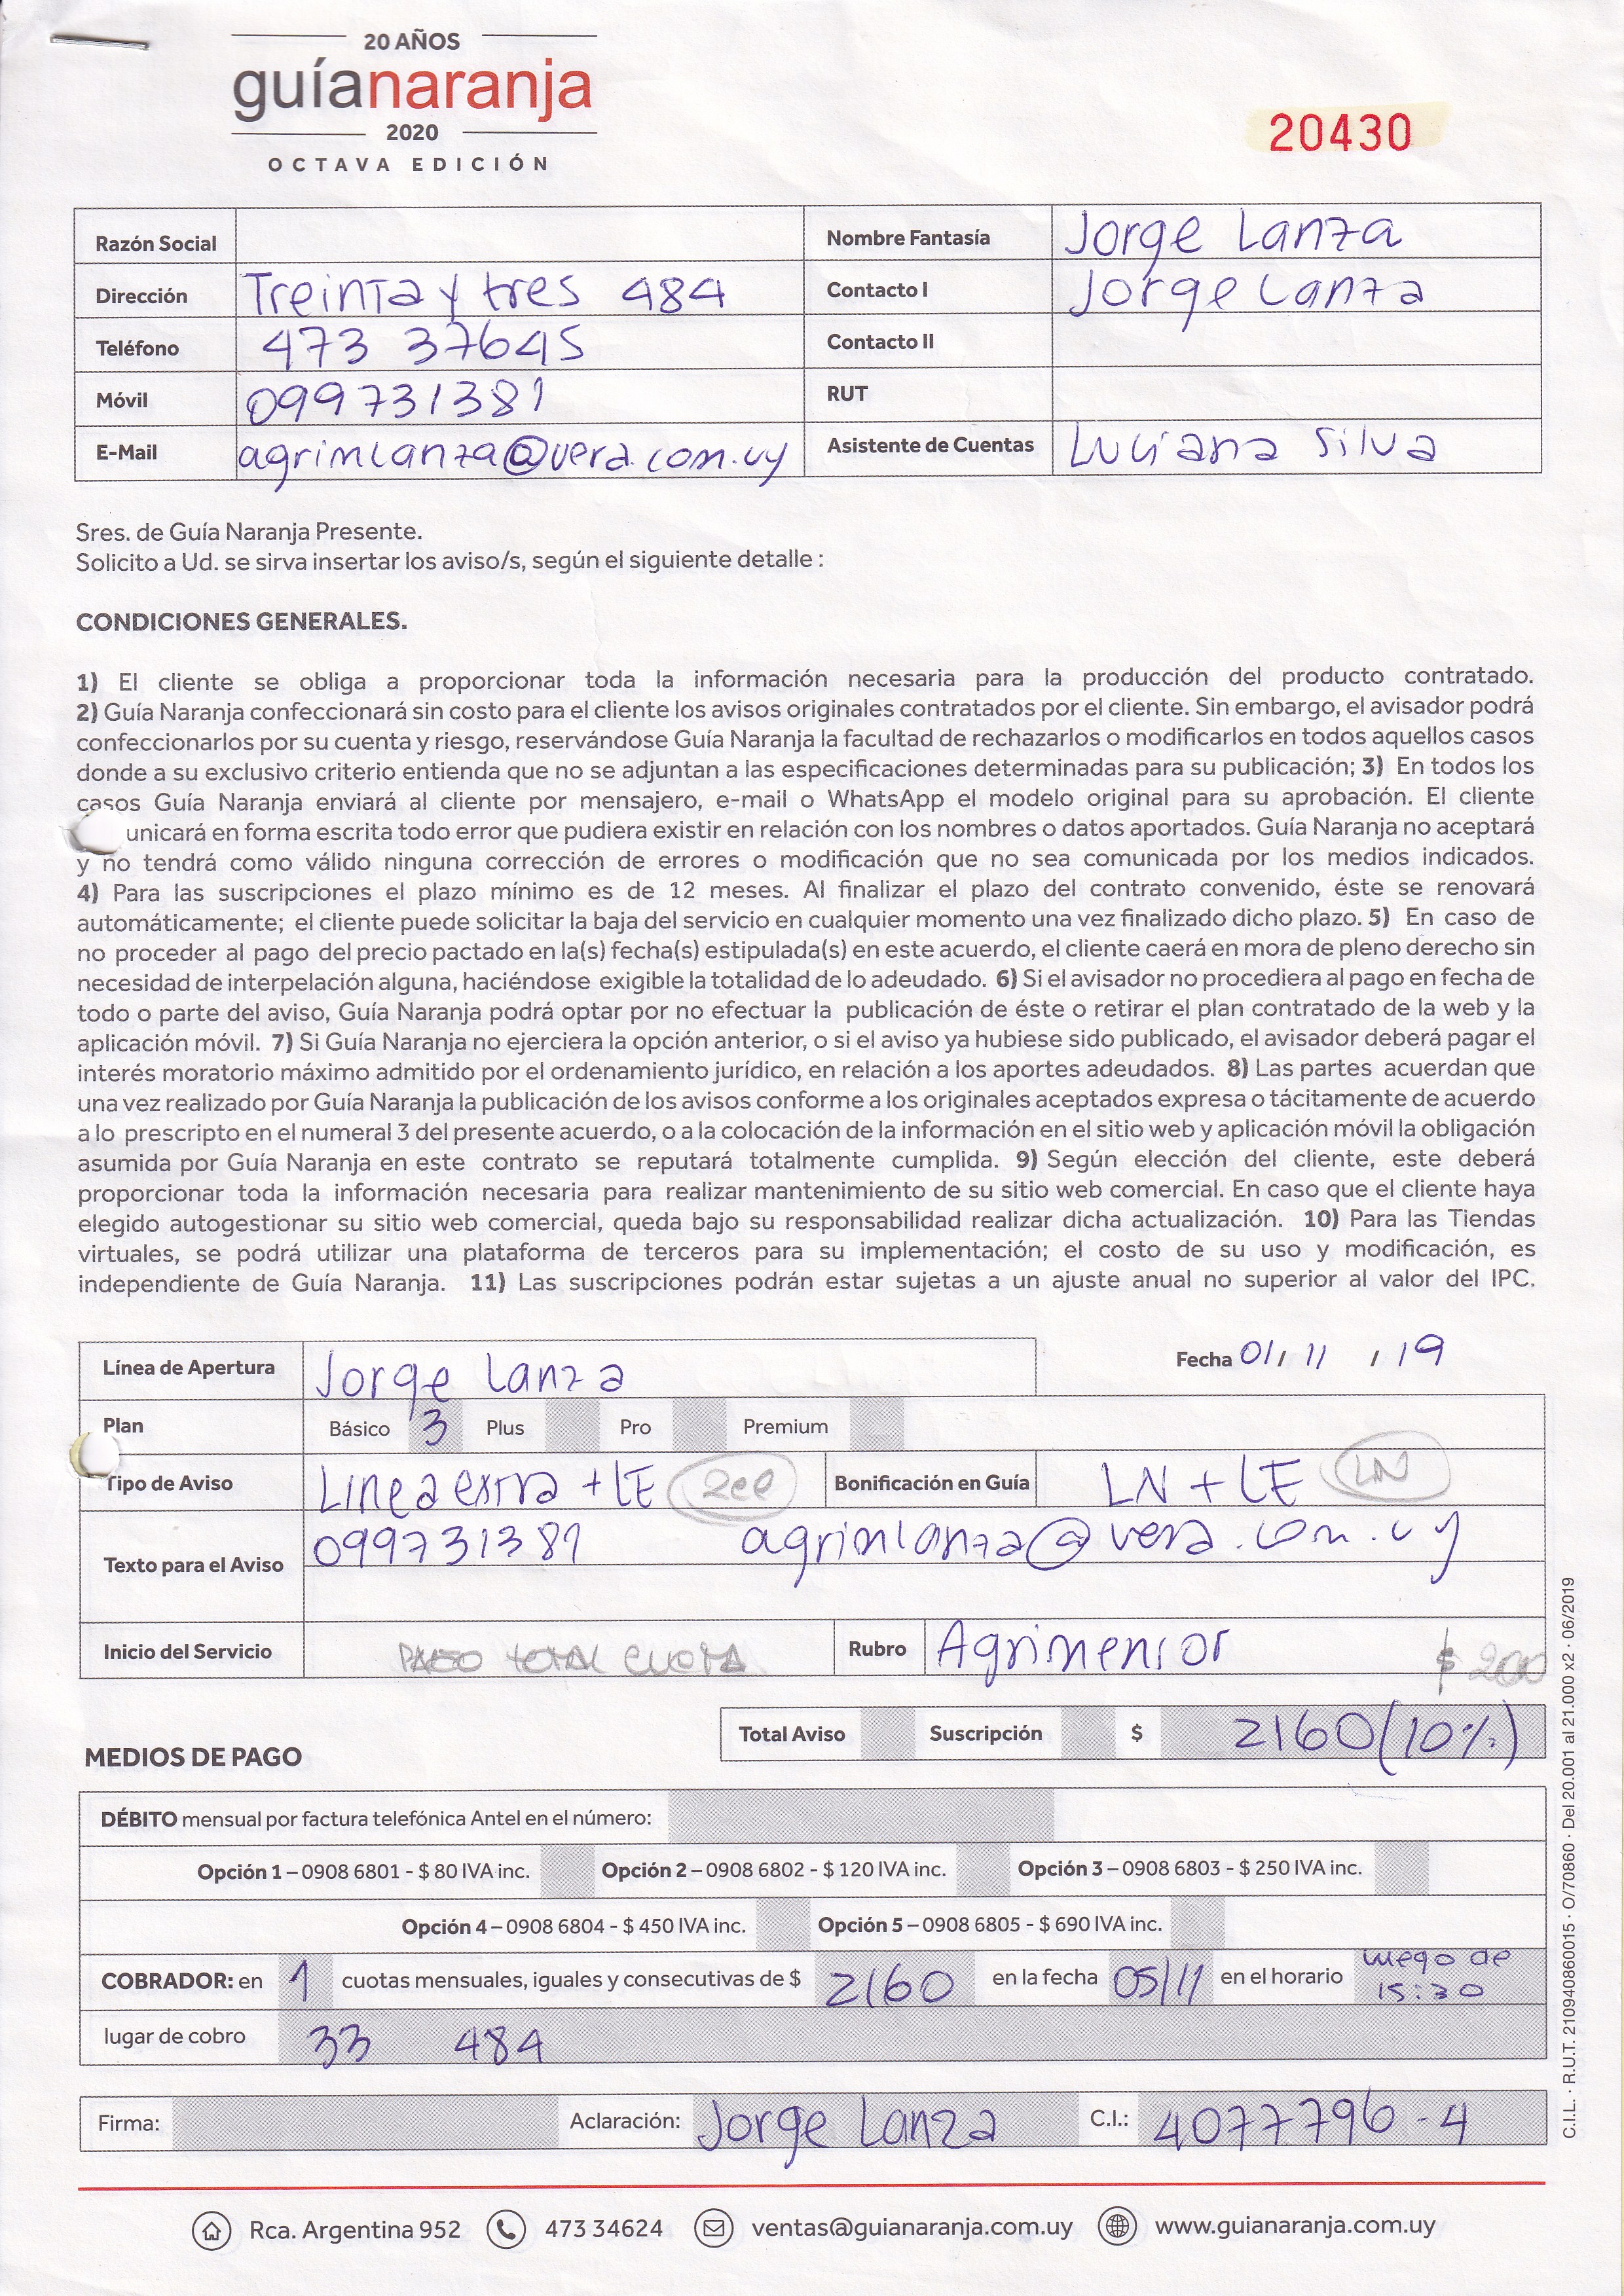 20 AÑOS
guíanaranja
2020
OCTAVA EDICIÓN
20430
Razón Social
Nombre Fantasía Jorge Lanza
Dirección Treinta y tres 484
Contacto I Jorge Lanza
Teléfono 473 37645
Contacto II
Móvil 099731381
RUT
E-Mail agrimlanza@vera.com.uy
Asistente de Cuentas Luciana Silva
Sres. de Guía Naranja Presente.
Solicito a Ud. se sirva insertar los aviso/s, según el siguiente detalle :
CONDICIONES GENERALES.
1) El cliente se obliga a proporcionar toda la información necesaria para la producción del producto contratado.
2) Guía Naranja confeccionará sin costo para el cliente los avisos originales contratados por el cliente. Sin embargo, el avisador podrá
confeccionarlos por su cuenta y riesgo, reservándose Guía Naranja la facultad de rechazarlos o modificarlos en todos aquellos casos
donde a su exclusivo criterio entienda que no se adjuntan a las especificaciones determinadas para su publicación; 3) En todos los
casos Guía Naranja enviará al cliente por mensajero, e-mail o WhatsApp el modelo original para su aprobación. El cliente
unicará en forma escrita todo error que pudiera existir en relación con los nombres o datos aportados. Guía Naranja no aceptará
y no tendrá como válido ninguna corrección de errores o modificación que no sea comunicada por los medios indicados.
4) Para las suscripciones el plazo mínimo es de 12 meses. Al finalizar el plazo del contrato convenido, éste se renovará
automáticamente; el cliente puede solicitar la baja del servicio en cualquier momento una vez finalizado dicho plazo. 5) En caso de
no proceder al pago del precio pactado en la(s) fecha(s) estipulada(s) en este acuerdo, el cliente caerá en mora de pleno derecho sin
necesidad de interpelación alguna, haciéndose exigible la totalidad de lo adeudado. 6) Si el avisador no procediera al pago en fecha de
todo o parte del aviso, Guía Naranja podrá optar por no efectuar la publicación de éste o retirar el plan contratado de la web y la
aplicación móvil. 7) Si Guía Naranja no ejerciera la opción anterior, o si el aviso ya hubiese sido publicado, el avisador deberá pagar el
interés moratorio máximo admitido por el ordenamiento jurídico, en relación a los aportes adeudados. 8) Las partes acuerdan que
una vez realizado por Guía Naranja la publicación de los avisos conforme a los originales aceptados expresa o tácitamente de acuerdo
a lo prescripto en el numeral 3 del presente acuerdo, o a la colocación de la información en el sitio web y aplicación móvil la obligación
asumida por Guía Naranja en este contrato se reputará totalmente cumplida. 9) Según elección del cliente, este deberá
proporcionar toda la información necesaria para realizar mantenimiento de su sitio web comercial. En caso que el cliente haya
elegido autogestionar su sitio web comercial, queda bajo su responsabilidad realizar dicha actualización. 10) Para las Tiendas
virtuales, se podrá utilizar una plataforma de terceros para su implementación; el costo de su uso y modificación, es
independiente de Guía Naranja. 11) Las suscripciones podrán estar sujetas a un ajuste anual no superior al valor del IPC.
Línea de Apertura Jorge Lanza
Fecha 01/ 11 / 19
Plan Básico 3 Plus Pro Premium
Tipo de Aviso Linea extra + LE
Bonificación en Guía LN + LE LN
Texto para el Aviso 099731381 agrimlanza@vera.com.uy
Inicio del Servicio PAGO TOTAL CUOTA
Rubro Agrimensor
$ 200
Total Aviso Suscripción $ 2160 (10%)
MEDIOS DE PAGO
DÉBITO mensual por factura telefónica Antel en el número:
Opción 1 – 0908 6801 - $ 80 IVA inc. Opción 2 – 0908 6802 - $ 120 IVA inc. Opción 3 – 0908 6803 - $ 250 IVA inc.
Opción 4 – 0908 6804 - $ 450 IVA inc. Opción 5 – 0908 6805 - $ 690 IVA inc.
COBRADOR: en 1 cuotas mensuales, iguales y consecutivas de $ 2160 en la fecha 05/11 en el horario luego de
15:30
lugar de cobro 33 484
Firma: Aclaración: Jorge Lanza C.I.: 4077796-4
Rca. Argentina 952 473 34624 ventas@guianaranja.com.uy www.guianaranja.com.uy
C.I.L. · R.U.T. 210940860015 · O/70860 · Del 20.001 al 21.000 x2 · 06/2019